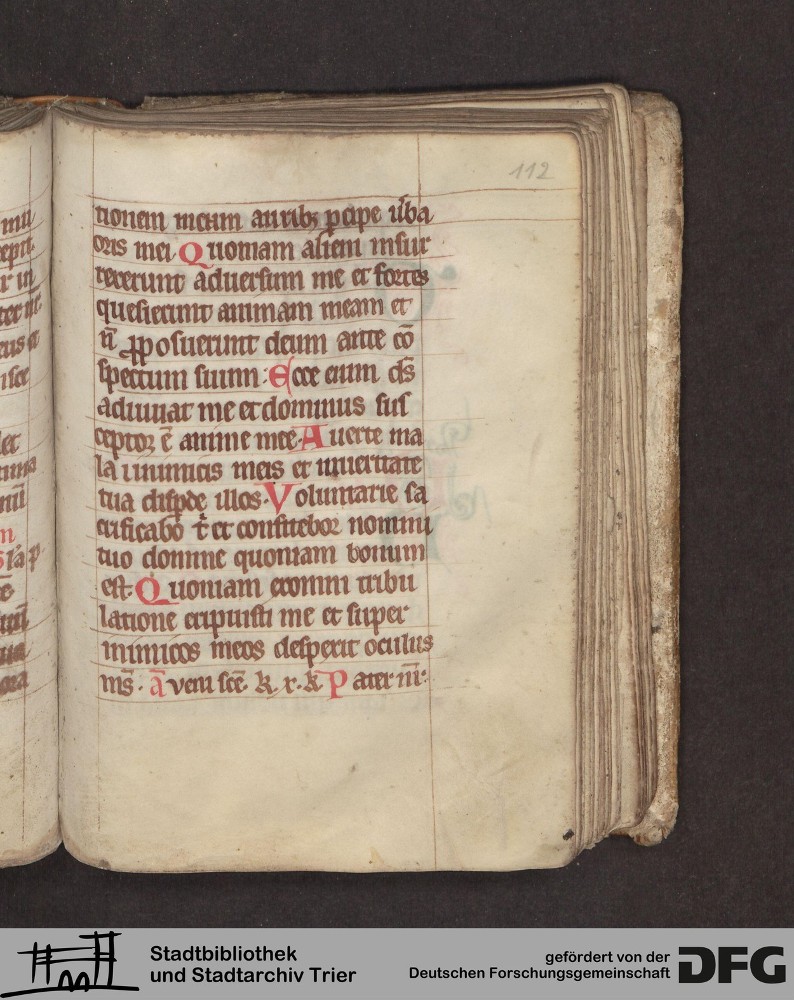 mu
cepit
r in
112
tionem meam aurib; ꝑcipe ūba
oris mei Quoniam alieni insur
rexerunt aduersum me et fortes
quesierunt animam meam et
n̄ ꝓposuerunt deum ante cō
spectum suum. Ecce enim ds̄
adiuuat me et dominus sus
ceptor ē anime mee. Auerte ma
la inimicis meis et in ueritate
tua dispde illos. Voluntarie sa
crificabo t̄ et confitebor nomini
tuo domine quoniam bonum
est. Quoniam ex omni tribu
latione eripuisti me et super
inimicos meos despexit oculus
ms̄. ā veni scē. k. x. k Pater nr̄.
Stadtbibliothek
und Stadtarchiv Trier
gefördert von der
Deutschen Forschungsgemeinschaft
DFG